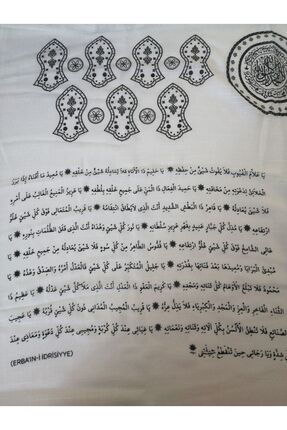 يَا عَلَّامَ الْغُيُوبِ فَلَا يَفُوتُ شَيْئٌ مِنْ حِفْظِهِ يَا حَلِيمُ ذَا الْاَنَاةِ فَلَا يُعَادِلُهُ شَيْئٌ مِنْ خَلْقِهِ يَا مُعِيدُ مَا اَفْنَاهُ اِذَا بَرَزَ
الْخَلَائِقُ لِدَعْوَتِهِ مِنْ مَخَافَتِهِ يَا حَمِيدَ الْفِعَالِ ذَا الْمَنِّ عَلَى جَمِيعِ خَلْقِهِ بِلُطْفِهِ يَا عَزِيزُ الْمَنِيعُ الْغَالِبُ عَلَى اَمْرِهِ
فَلَا شَيْئَ يُعَادِلُهُ يَا قَاهِرُ ذَا الْبَطْشِ الشَّدِيدِ اَنْتَ الَّذِى لَايُطَاقُ انْتِقَامُهُ يَا قَرِيبُ الْمُتَعَالِى فَوْقَ كُلِّ شَيْئٍ عُلُوُّ
ارْتِفَاعِهِ يَا مُذِلَّ كُلِّ جَبَّارٍ عَنِيدٍ بِقَهْرِ عَزِيزِ سُلْطَانِهِ يَا نُورَ كُلِّ شَيْئٍ وَهُدَاهُ اَنْتَ الَّذِى فَلَقَ الظُّلُمَاتِ بِنُورِهِ يَا
عَالِىَ الشَّامِخُ فَوْقَ كُلِّ شَيْئٍ عُلُوُّ ارْتِفَاعِهِ يَا قُدُّوسُ الطَّاهِرُ مِنْ كُلِّ سُوءٍ فَلَا شَيْئَ يُعَادِلُهُ مِنْ خَلْقِهِ يَا
مُبْدِئَ الْبَرَايَا وَمُعِيدَهَا بَعْدَ فَنَائِهَا بِقُدْرَتِهِ يَا جَلِيلُ الْمُتَكَبِّرُ عَلَى كُلِّ شَيْئٍ فَالْعَدْلُ اَمْرُهُ وَالصِّدْقُ وَعْدُهُ يَا
مَحْمُودُ فَلَا تَبْلُغُ الْاَوْهَامُ كُلَّ ثَنَائِهِ وَمَجْدِهِ يَا كَرِيمَ الْعَفْوِ ذَا الْعَدْلِ اَنْتَ الَّذِى مَلَاَ كُلَّ شَيْئٍ عَدْلُهُ يَا عَظِيمُ ذَا
الثَّنَاءِ الْفَاخِرِ وَالْعِزِّ وَالْمَجْدِ وَالْكِبْرِيَاءِ فَلَا يَذِلُّ عِزُّهُ يَا قَرِيبُ الْمُجِيبُ الْمُدَانِى دُونَ كُلِّ شَيْئٍ قُرْبُهُ يَا عَجِيبَ
الصَّنَائِعِ فَلَا تَنْطِقُ الْاَلْسُنُ بِكُلِّ اٰلَائِهِ وَثَنَائِهِ وَنَعْمَائِهِ يَا غِيَاثِى عِنْدَ كُلِّ كُرْبَةٍ وَمُجِيبِى عِنْدَ كُلِّ دَعْوَةٍ وَمَعَاذِى عِنْدَ
كُلِّ شِدَّةٍ وَيَا رَجَائِى حِينَ تَنْقَطِعُ حِيلَتِى
(ERBAİN-İ İDRİSİYYE)